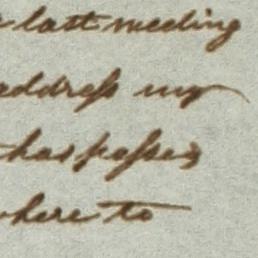 last meeting
address my
has passed
where to